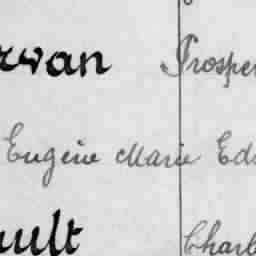 rwan Prosper
Eugène Marie Edo
ault Charl